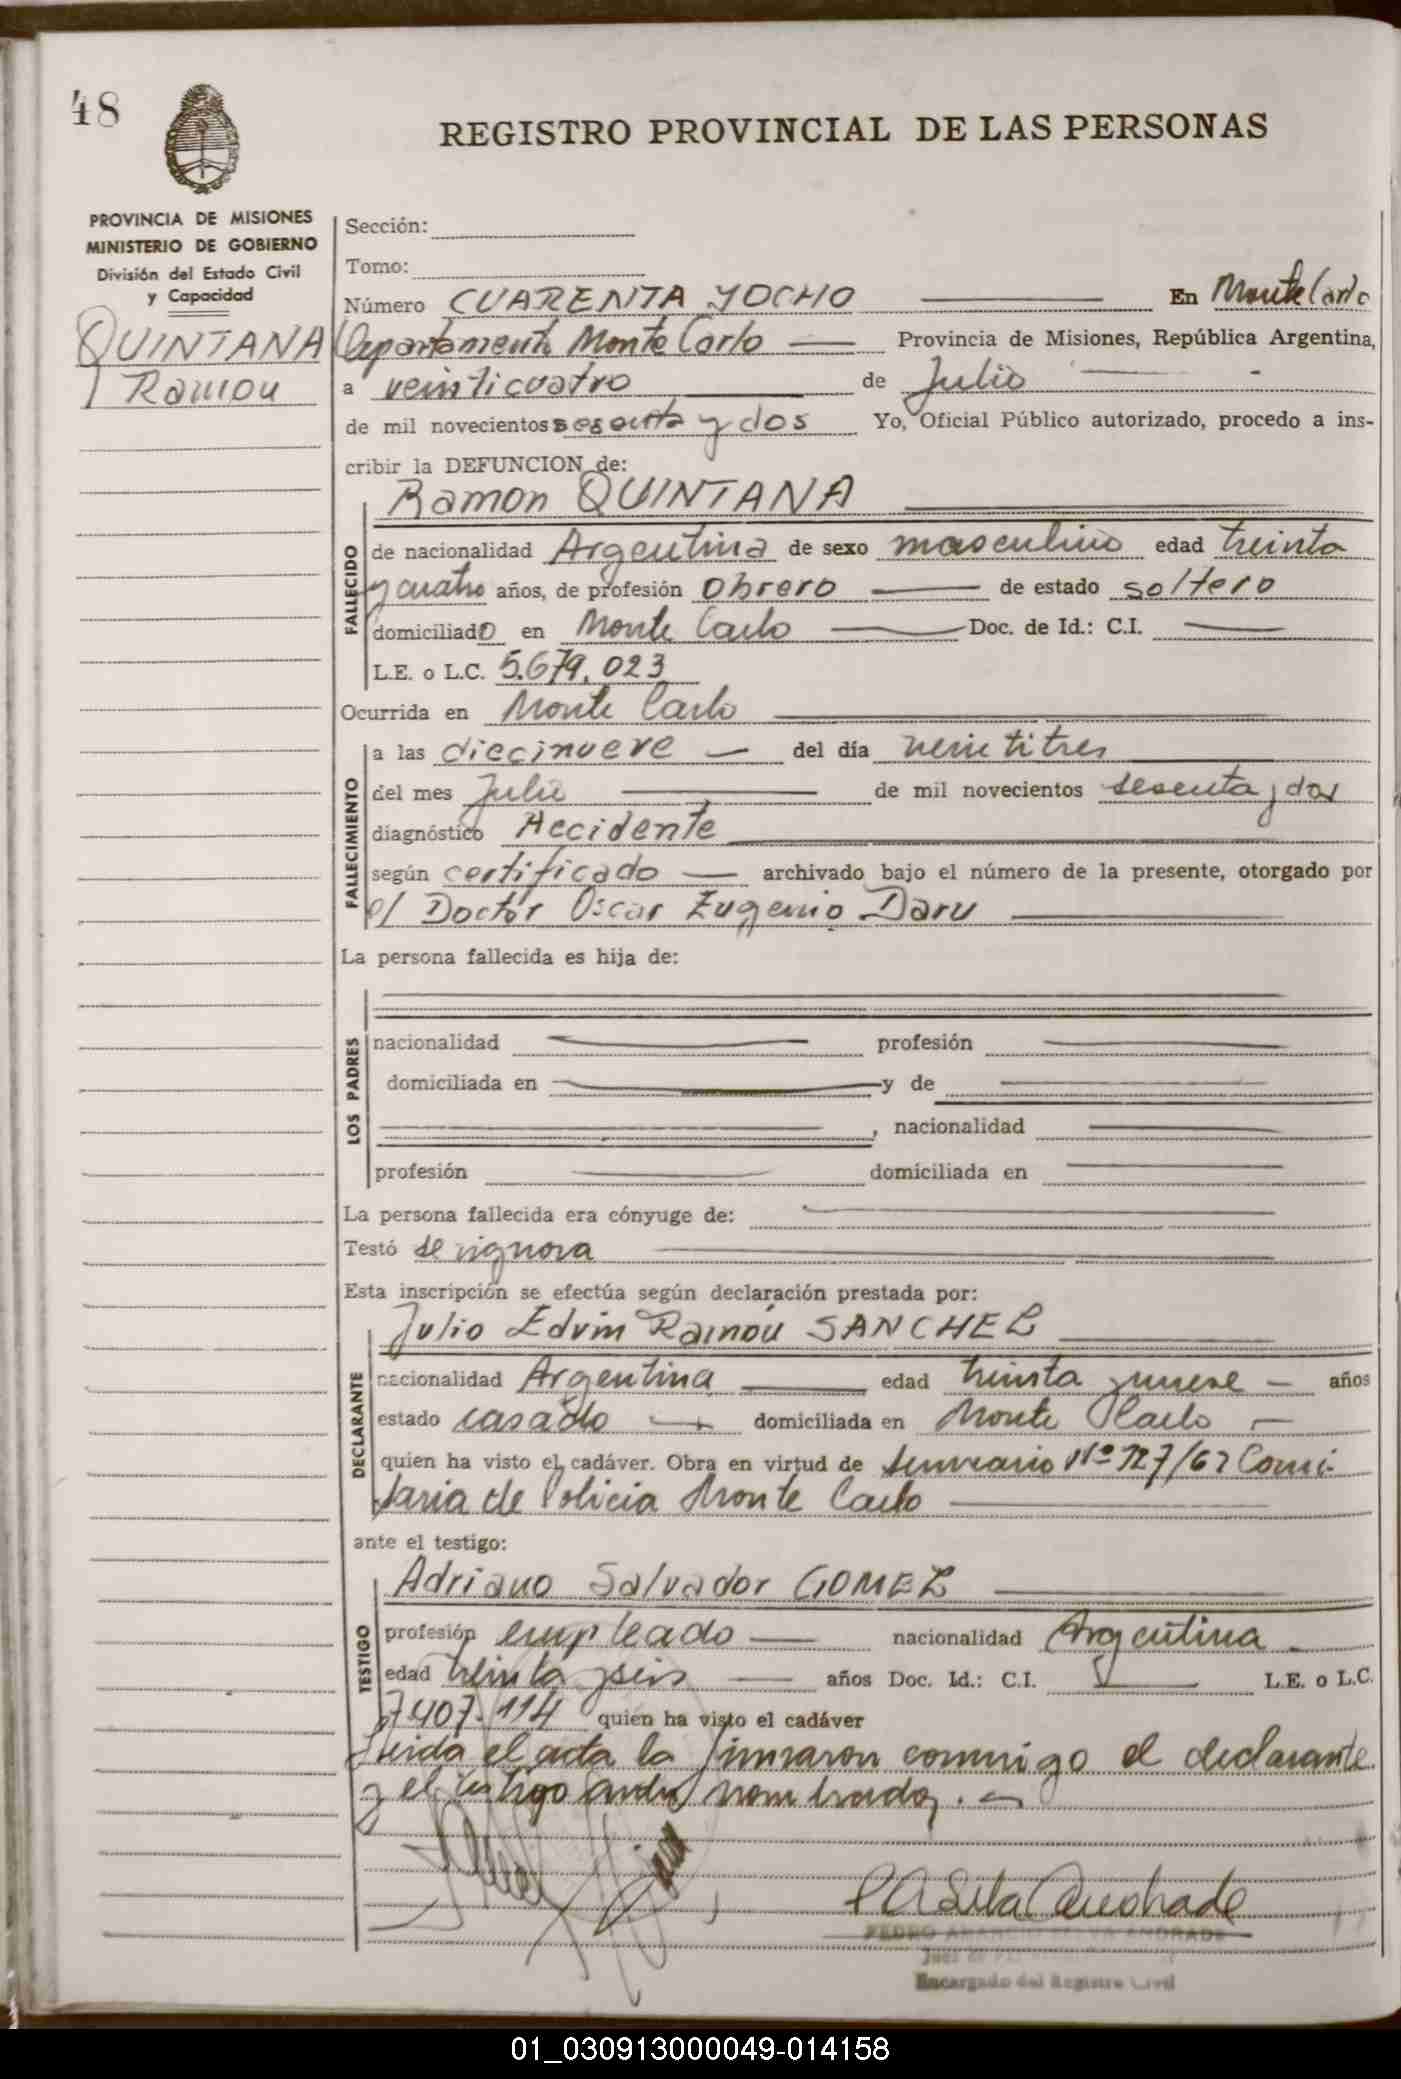 48
REGISTRO PROVINCIAL DE LAS PERSONAS
PROVINCIA DE MISIONES
MINISTERIO DE GOBIERNO
División del Estado Civil
y Capacidad
QUINTANA
Ramon
Sección:
Tomo:
Número CUARENTA YOCHO En Monte Carlo
Departamento Monte Carlo Provincia de Misiones, República Argentina,
a veinticuatro de Julio
de mil novecientos sesenta y dos Yo, Oficial Público autorizado, procedo a ins-
cribir la DEFUNCION de:
Ramon QUINTANA
FALLECIDO
de nacionalidad Argentina de sexo masculino edad treinta
y cuatro años, de profesión Obrero de estado soltero
domiciliado en Monte Carlo Doc. de Id.: C.I.
L.E. o L.C. 5.679.023
Ocurrida en Monte Carlo
FALLECIMIENTO
a las diecinueve del día veintitres
del mes Julio de mil novecientos sesenta y dos
diagnóstico Accidente
según certificado archivado bajo el número de la presente, otorgado por
el Doctor Oscar Eugenio Daru
La persona fallecida es hija de:
LOS PADRES
nacionalidad profesión
domiciliada en y de
, nacionalidad
profesión domiciliada en
La persona fallecida era cónyuge de:
Testó se ignora
Esta inscripción se efectúa según declaración prestada por:
Julio Edvin Ramón SANCHEZ
DECLARANTE
nacionalidad Argentina edad treinta y nueve años
estado casado domiciliada en Monte Carlo
quien ha visto el cadáver. Obra en virtud de sumario Nº 127/62 Comi-
saria de Policia Monte Carlo
ante el testigo:
Adriano Salvador GOMEZ
TESTIGO
profesión empleado nacionalidad Argentina
edad treinta y seis años Doc. Id.: C.I. L.E. o L.C.
7.407.114 quien ha visto el cadáver
Leida el acta la firmaron conmigo el declarante
y el testigo nombrados.
PEDRO SILVA ANDRADE
Encargado del Registro Civil
01_030913000049-014158